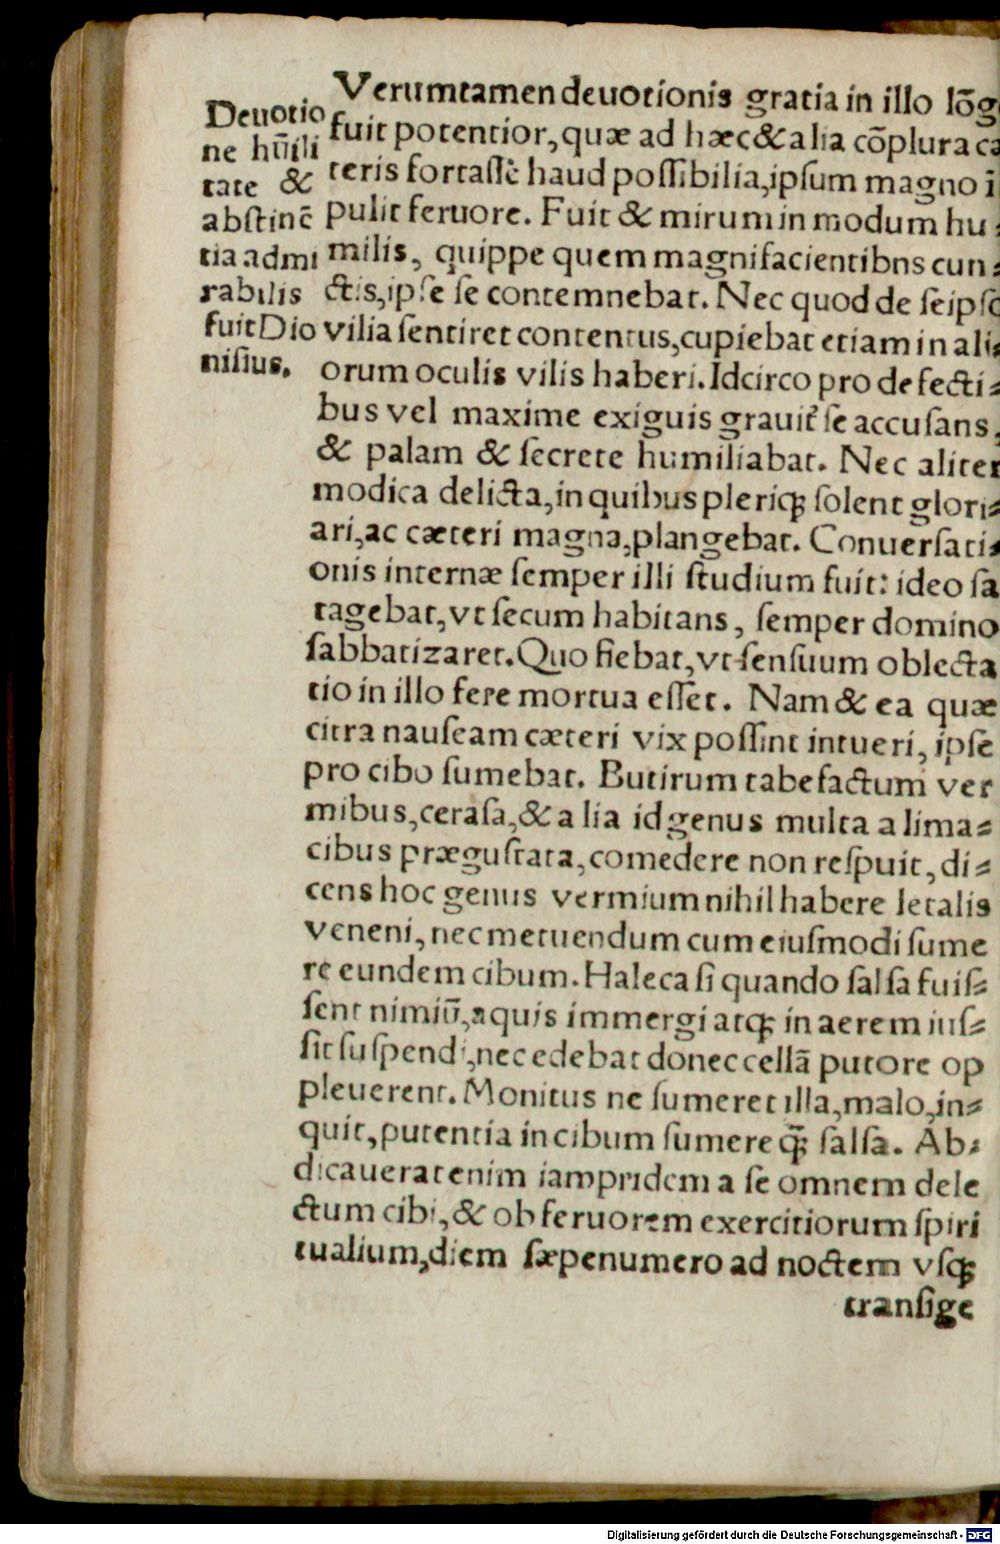 Deuotio
ne hūili
tate &
abſtinē
tia admi
rabilis
fuit Dio
niſius.
Verumtamen deuotionis gratia in illo lōg
fuit potentior, quæ ad hæc & alia cōplura cæ
teris fortaſſè haud poſſibilia, ipſum magno ī
pulit feruore. Fuit & mirum in modum hu⸗
milis, quippe quem magnifacientibns cun⸗
ctis, ipſe ſe contemnebat. Nec quod de ſeipſo
vilia ſentiret contentus, cupiebat etiam in ali⸗
orum oculis vilis haberi. Idcirco pro defecti⸗
bus vel maxime exiguis grauiť ſe accuſans,
& palam & ſecrete humiliabat. Nec aliter
modica delicta, in quibus pleriqꝫ ſolent glori⸗
ari, ac cæteri magna, plangebat. Conuerſati⸗
onis internæ ſemper illi ſtudium fuit: ideo ſa
tagebat, vt ſecum habitans, ſemper domino
ſabbatizaret. Quo fiebat, vt ſenſuum oblecta
tio in illo fere mortua eſſet. Nam & ea quæ
citra nauſeam cæteri vix poſſint intueri, ipſe
pro cibo ſumebat. Butirum tabefactum ver
mibus, ceraſa, & alia id genus multa a lima⸗
cibus præguſtata, comedere non reſpuit, di⸗
cens hoc genus vermium nihil habere letalis
veneni, nec metuendum cum eiuſmodi ſume
re eundem cibum. Haleca ſi quando ſalſa fuiſ⸗
ſent nimiū, aquis immergi atqꝫ in aerem iuſ⸗
ſit ſuſpendi, nec edebat donec cellā putore op
pleuerent. Monitus ne ſumeret illa, malo, in⸗
quit, putentia in cibum ſumere qꝫ̄ ſalſa. Ab⸗
dicauerat enim iampridem a ſe omnem dele
ctum cibi, & ob feruorem exercitiorum ſpiri
tualium, diem ſæpenumero ad noctem vſqꝫ
tranſige
Digitalisierung gefördert durch die Deutsche Forschungsgemeinschaft - DFG